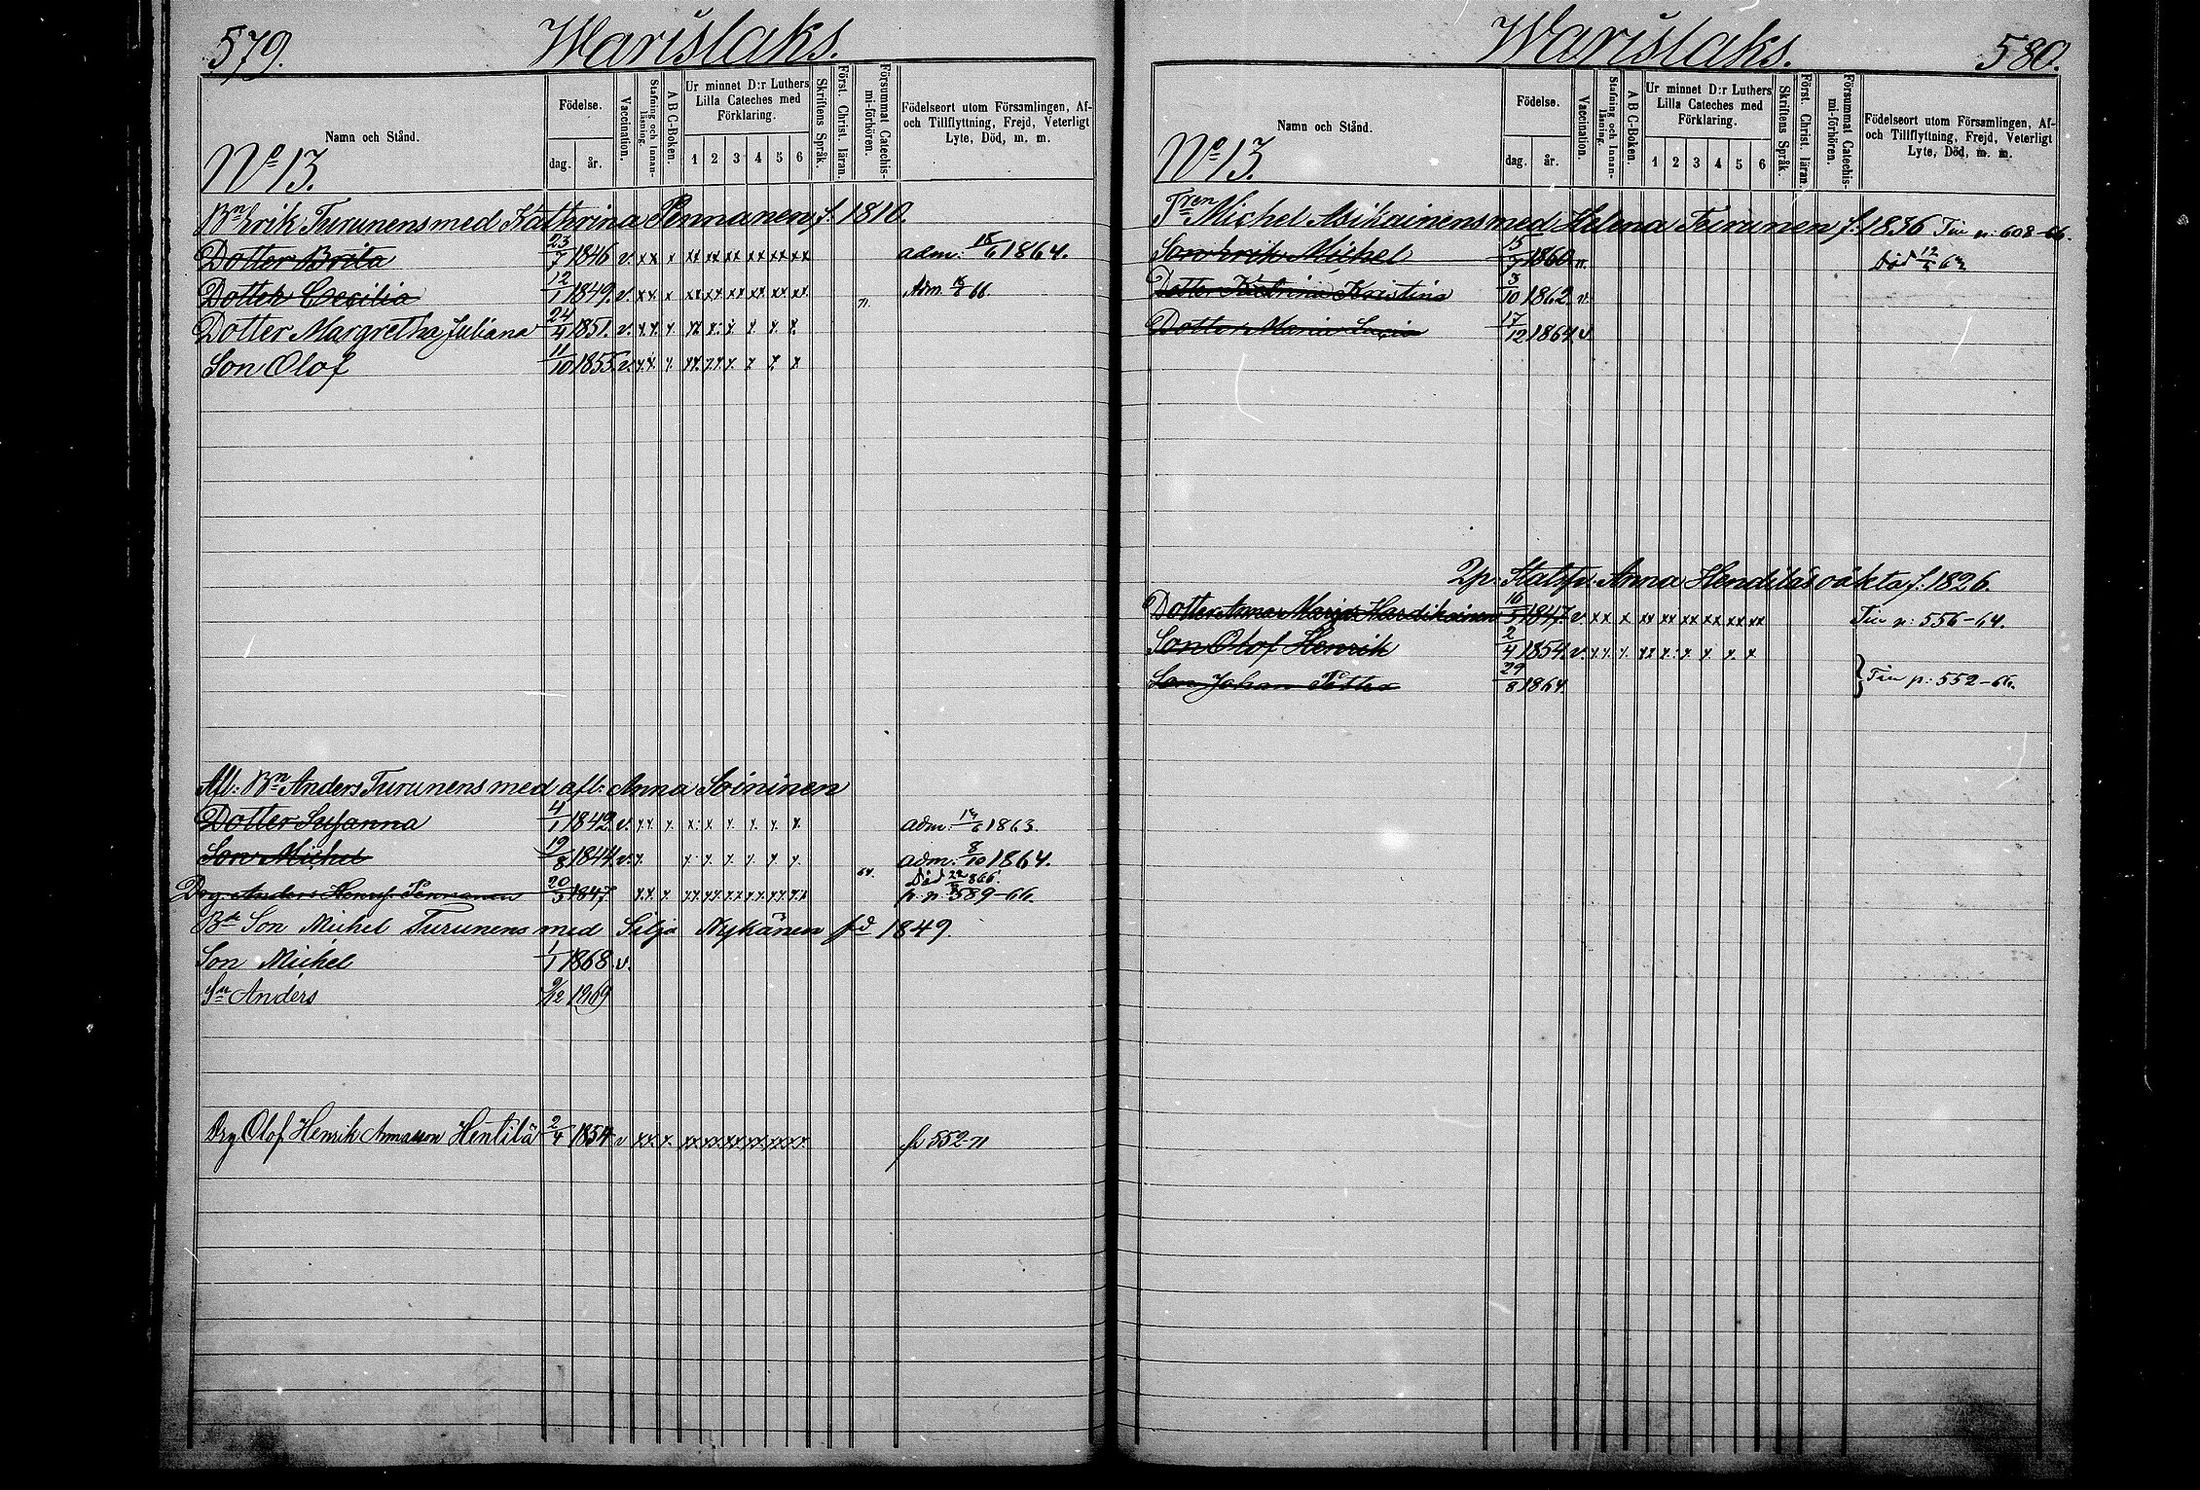 579. Warislaks.
Namn och Stånd.
Födelse.
dag. år.
Vaccination.
Stafning och Innanläsning.
A B C-Boken.
Ur minnet D:r Luthers Lilla Cateches med Förklaring.
1 2 3 4 5 6
Skriftens Språk.
Först. Christ. läran.
Försummat Catechismi-förhören.
Födelseort utom Församlingen, Af- och Tillflyttning, Frejd, Veterligt Lyte, Död, m. m.
No 13.
Bn Erik Turunens med Kathrina Pennanen, f. 1810.
Dotter Brita 23/7 1846 v. xx x xx xx xx xx xx xx adm: 18/6 1864.
Dotter Cecilia 12/1 1849. v. xx x xx xx xx xx xx xx 71. Adm. 66
Dotter Margretha Juliana 24/4 1851. v. xx x xx x x x x x
Son Olof 11/10 1855. v. xx x xx xx x x x x
Afl: Bn Anders Turunens med afl: Anna Soininen
Dotter Susanna 4/1 1842. v. xx x x x x x x x adm: 14/6 1863.
Son Michel 19/8 1844. v. x x x x x x x adm: 8/10 1864.
Drg. Anders Henr: Pennanen 20/3 1847 xx x xx xx xx xx xx xx 64. Död 22/8 66. p. n: 589-66.
Bde Son Michel Turunens med Silja Nykänen fd 1849.
Son Michel 1/1 1868 v.
Sn Anders 9/12 1869
Drg Olof Henrik Annasson Hentilä 2/4 1854 v xx x xx xx xx xx xx xx p 552-71
Warislaks. 580.
Namn och Stånd.
Födelse.
dag. år.
Vaccination.
Stafning och Innanläsning.
A B C-Boken.
Ur minnet D:r Luthers Lilla Cateches med Förklaring.
1 2 3 4 5 6
Skriftens Språk.
Först. Christ. läran.
Försummat Catechismi-förhören.
Födelseort utom Församlingen, Af- och Tillflyttning, Frejd, Veterligt Lyte, Död, m. m.
No 13.
Michel Asikainens med Helena Teirunen f. 1836 n: 608-66.
Son Erik Michel 15/7 1860. Död 12/5 63
Dotter Kathrina Kristina 3/10 1862 v.
Dotter Maria Lucia 17/12 1864. v.
Anna Henditäs oäkta f. 1826.
Dotter Anna Maria Hardikainen 16/5 1847 v xx x xx xx xx xx xx xx n: 556-64.
Son Olof Henrik 2/4 1854. v. xx x xx x x x x x
Son Johan Petter 29/8 1864 } p: 552-66.